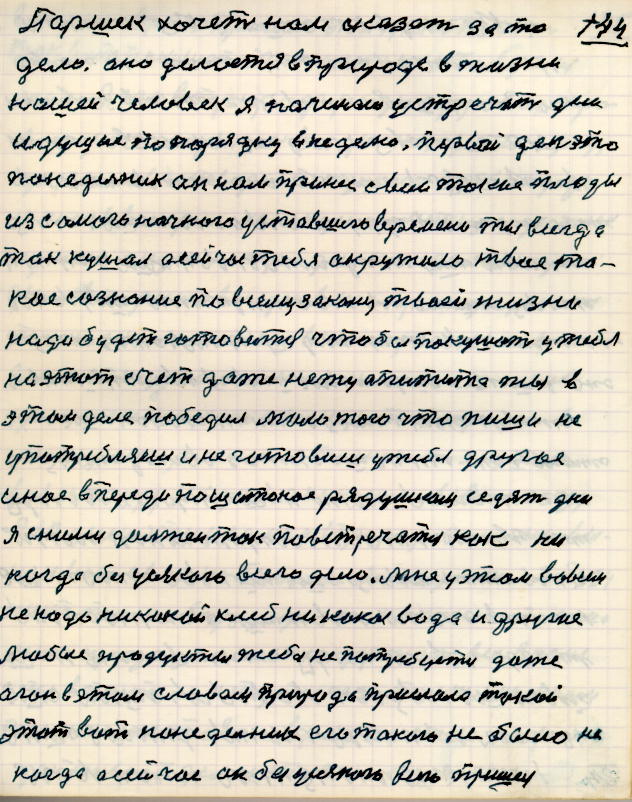 Паршек хочет нам сказат за то 744
дело. оно делоется в природе в жизни
нашей человек я начинаю устречат дни
идущие по порядку в неделю. первой ден это
понеделник он нам принес свои такие плоды
из самого начного уставшего времени ты всегда
так кушал осейчас тебя окружило твое та-
кое сознание по всему закону твоей жизни
надо будет готовется чтобы покушат у тебя
на этот счет даже нету апитита ты в
этом деле победил мало того что пищи не
употребляеш и не готовиш у тебя другое
иное впереди по щетоное рядушком седят дни
я с ними должен так повстречатся как ни
когда без усякого всего дело. мне у этом вовсем
не надо никокой хлеб ни кокоя вода и другие
любые продукты жеба не потребности даже
огон в этом словам природа прислала такой
этот вот понеделник его такого не было не
когда осейчас он без усякого весь пришел